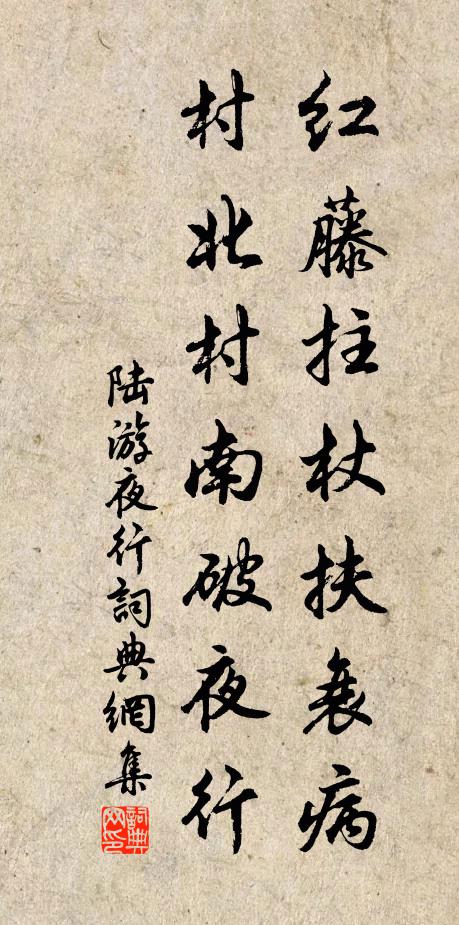 红藤拄杖扶衰病
村北村南破夜行
陆游夜行詞典網集
詞典
网印